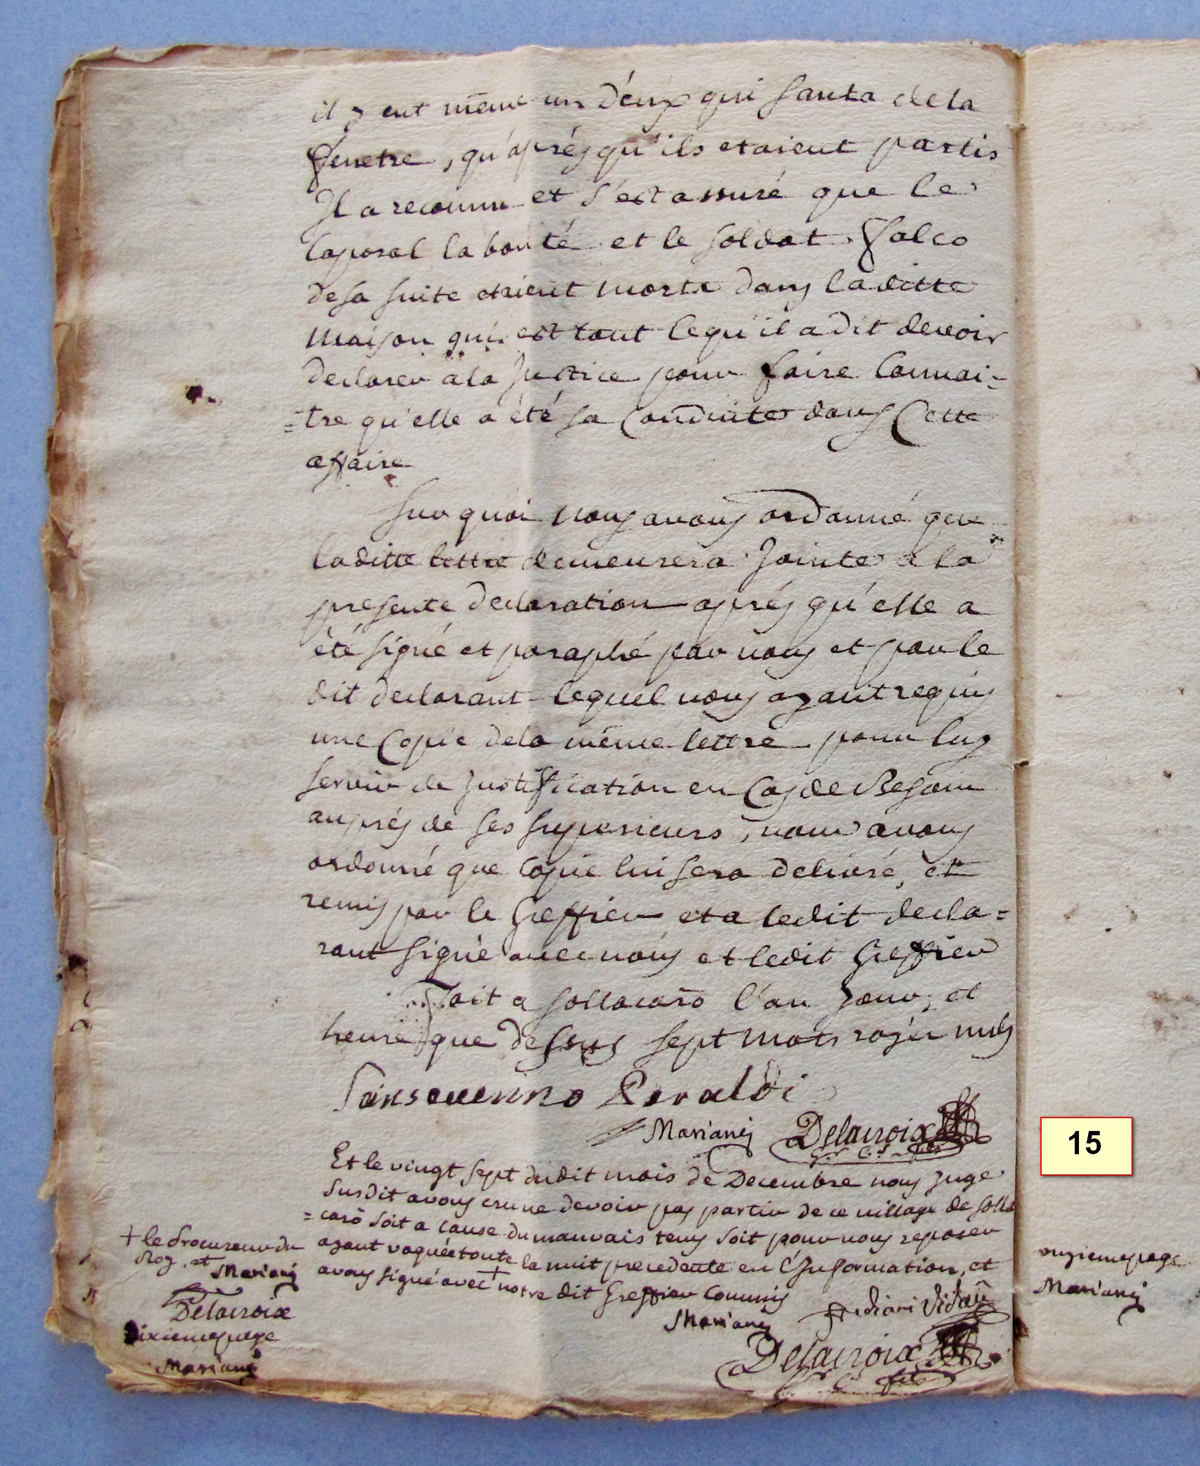 il y eut même un d'eux qui sauta de la
fenetre, qu'aprés qu'ils etaient partis
Il a reconnu et s'est assuré que le
Caporal la bonté et le soldat falco
de sa suite etaient morts dans la ditte
maison qui est tout ce qu'il a dit devoir
declarer a la Justice pour faire Connai-
=tre qu'elle a été sa Conduite dans Cette
affaire
Sur quoi nous avons ordonné que
la ditte lettre demeurera Jointe a la
presente declaration aprés qu'elle a
été signé et paraphé par nous et par le
dit declarant lequel nous ayant requis
une Copie de la même lettre pour luy
servir de Justification en Cas de Besoin
auprés de ses superieurs, nous avons
ordonné que Copie lui sera delivré, et
remis par le Greffier et a ledit decla=
rant signé avec nous et ledit Greffier
fait a sollacaro l'an Jour, et
heure que dessus sept mots rayés nuls
Sanseverino Peraldi
Mariani Delacroix
Et le vingt sept dudit mois de Decembre nous Juge
susdit avons cru ne devoir pas partir de ce village de solla
=caro soit a cause du mauvais tems soit pour nous reposer
ayant vaquée toute la nuit precedente en l'Information, et
avons signé avec + notre dit Greffier Commis
+ le Procureur du
Roy, et
Mariani
Delacroix
dixieme page
Mariani
Mariani
Delacroix
15
onzieme page
Mariani